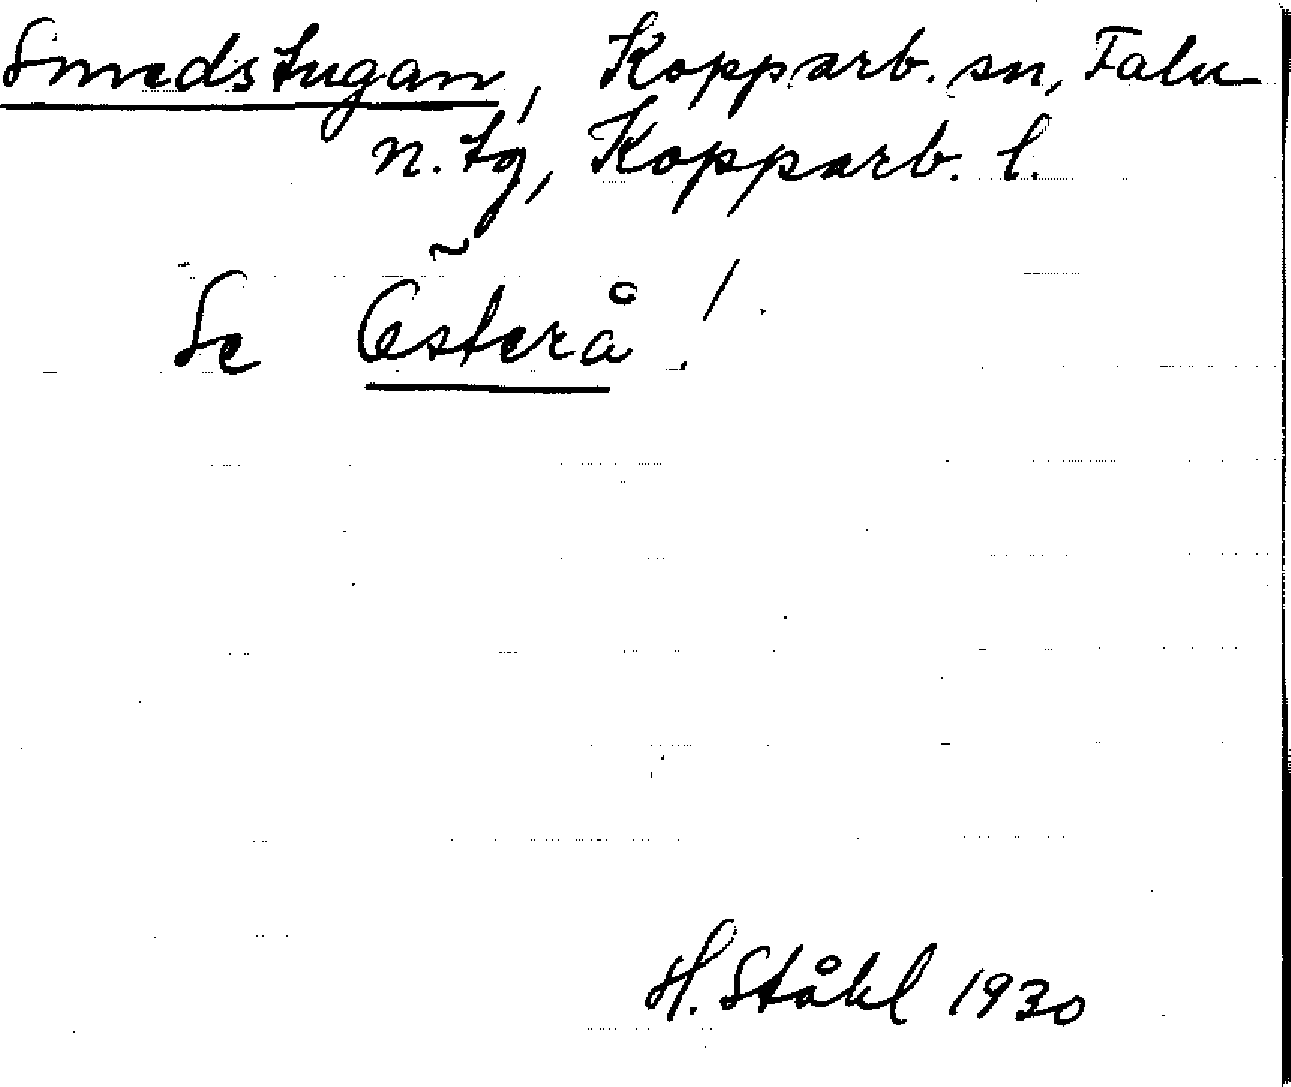 Smedstugan, Kopparb. sn, Falu
n. tg, Kopparb. l.
Se Österå!
H. Ståhl 1930